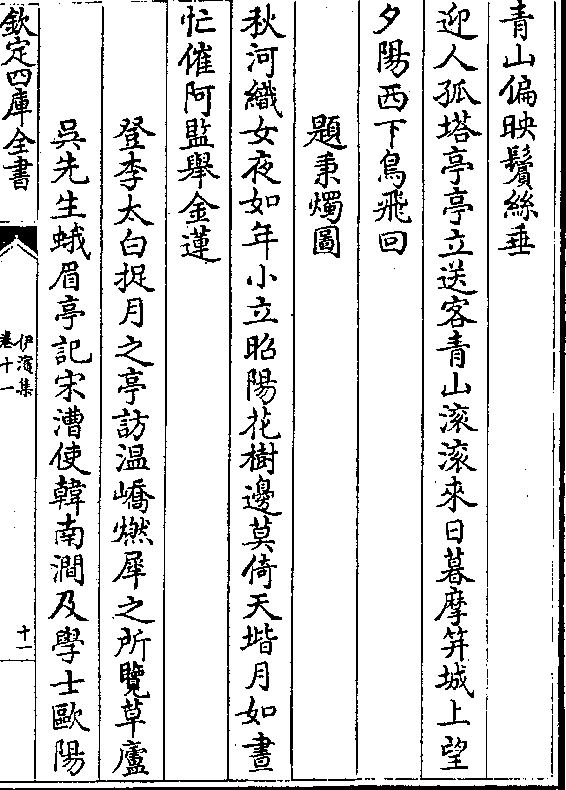 青山偏映鬢絲垂
迎人孤塔亭亭立送客青山滚滚來日暮摩笄城上望
夕陽西下鳥飛回
題秉燭圖
秋河織女夜如年小立昭陽花樹邊莫倚天堦月如晝
忙催阿監舉金蓮
登李太白捉月之亭訪温嶠燃犀之所覽草廬
吳先生蛾眉亭記宋漕使韓南澗及學士歐陽
欽定四庫全書
伊濱集
卷十一
十一